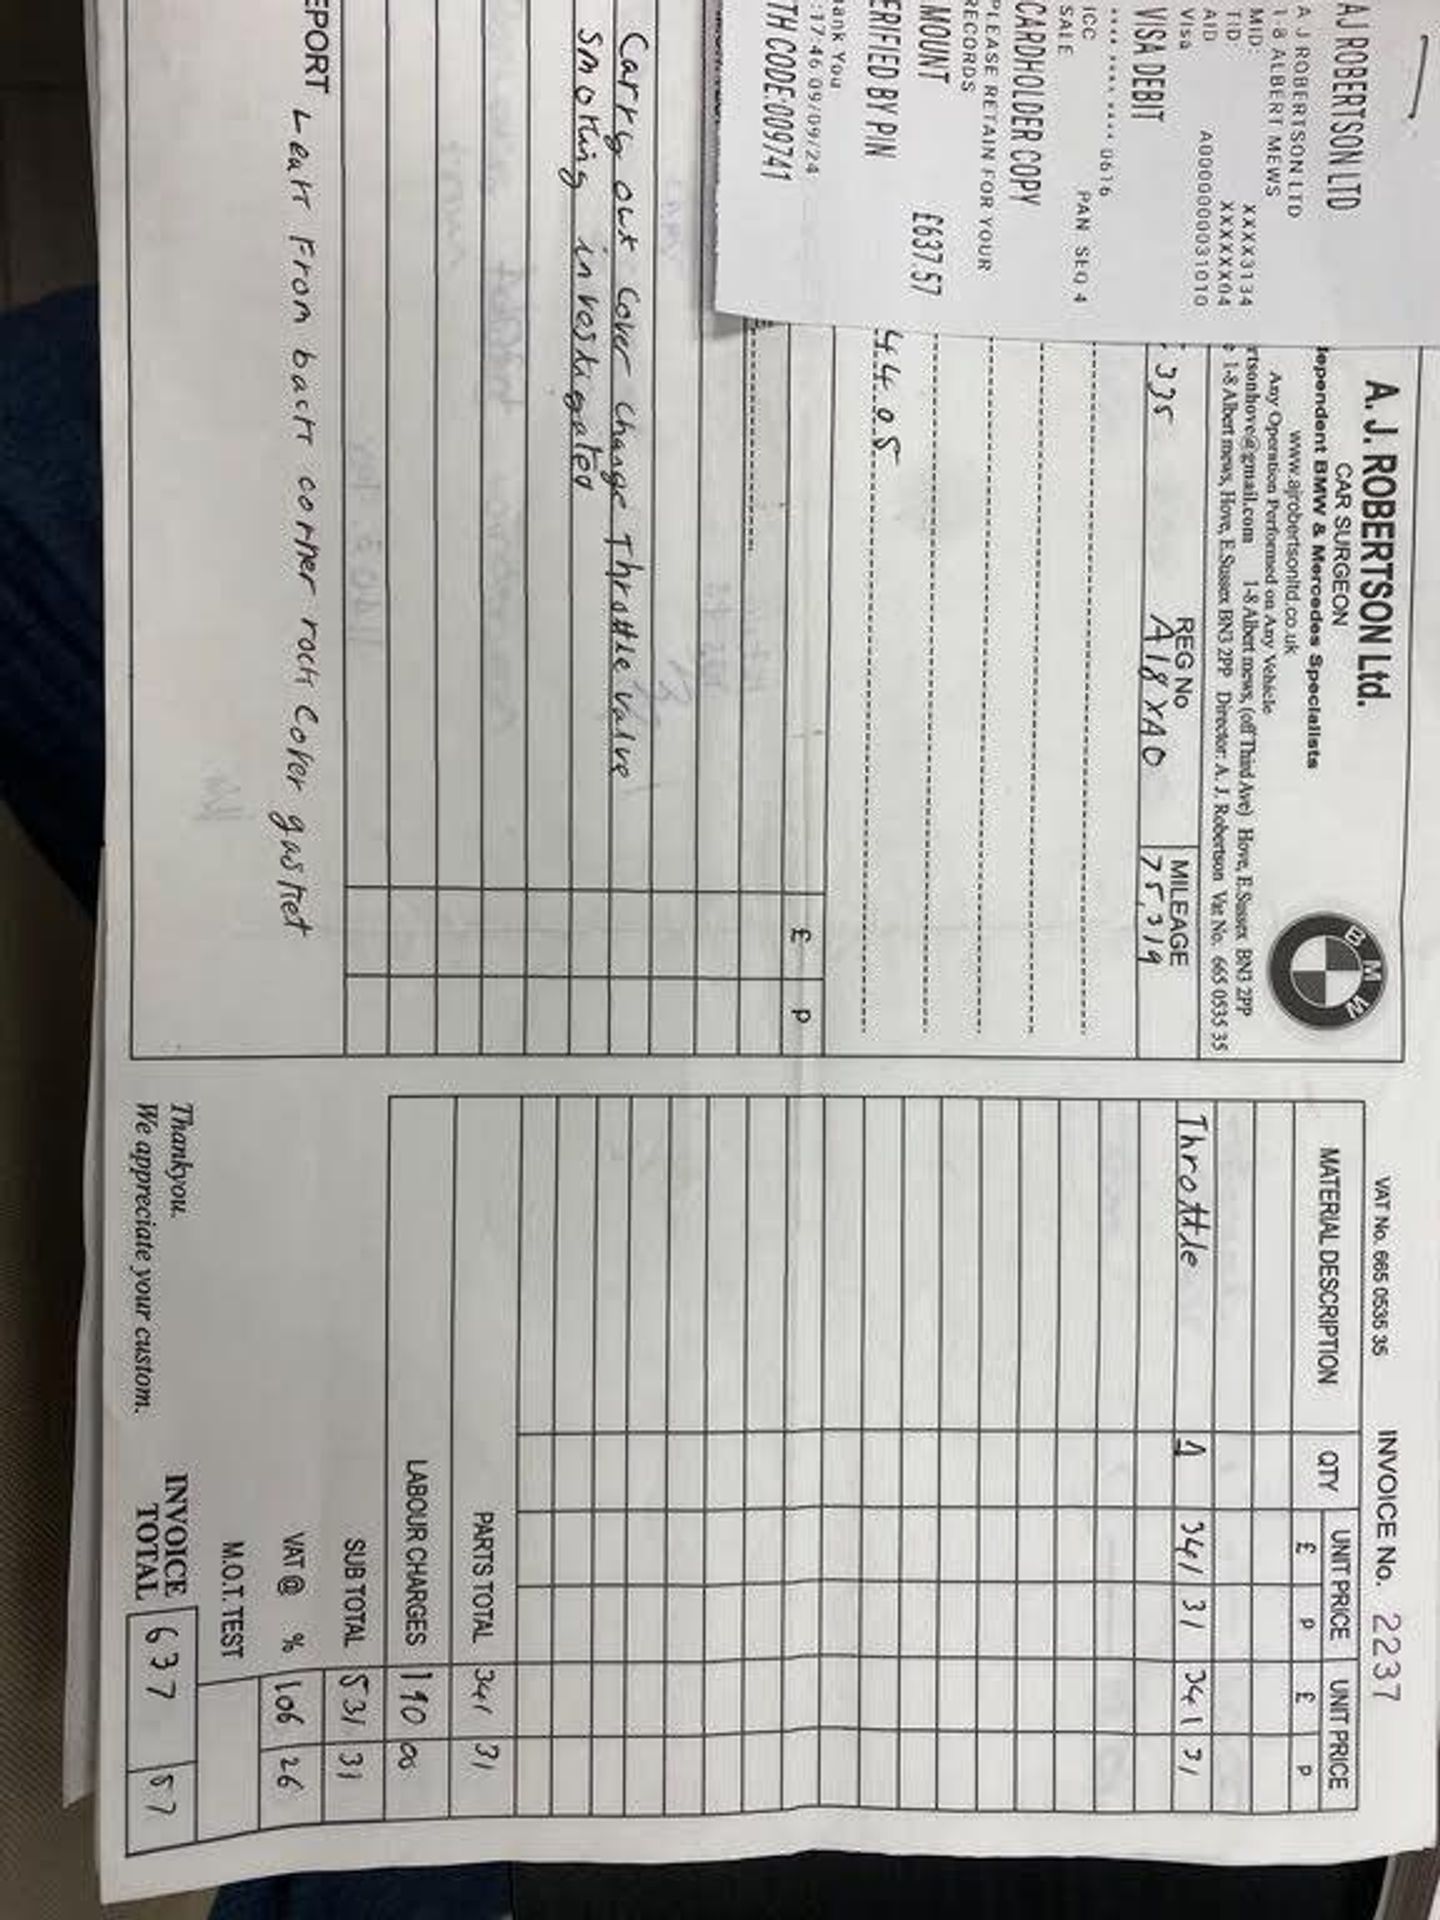 AJ ROBERTSON LTD
A J ROBERTSON LTD
1-8 ALBERT MEWS
MID: XXXX3134
TID: XXXXXX04
AID A0000000031010
Visa
VISA DEBIT
**** **** **** 0616
PAN SEQ 4
ICC
SALE
CARDHOLDER COPY
PLEASE RETAIN FOR YOUR
RECORDS
MOUNT £637.57
ERIFIED BY PIN
ank You
:17:46 09/09/24
TH CODE:009741
A. J. ROBERTSON Ltd.
CAR SURGEON
dependent BMW & Mercedes Specialists
www.ajrobertsonltd.co.uk
Any Operation Performed on Any Vehicle
rtsonhove@gmail.com 1-8 Albert mews, (off Third Ave) Hove, E.Sussex BN3 2PP
e 1-8 Albert mews, Hove, E.Sussex BN3 2PP Director: A. J. Robertson Vat No. 665 0535 35
BMW
REG No MILEAGE
335 A18XAO 75,319
4405
£ p
Carry out Cover Change Throttle valve
Smoking investigated
EPORT Leak From back corner rock Cover gasket
VAT No. 665 0535 35 INVOICE No. 2237
MATERIAL DESCRIPTION QTY UNIT PRICE UNIT PRICE
£ p £ p
Throttle 1 341 31 341 31
PARTS TOTAL 341 31
LABOUR CHARGES 190 00
SUB TOTAL 531 31
VAT @ % 106 26
M.O.T. TEST
Thankyou.
We appreciate your custom.
INVOICE
TOTAL 637 57